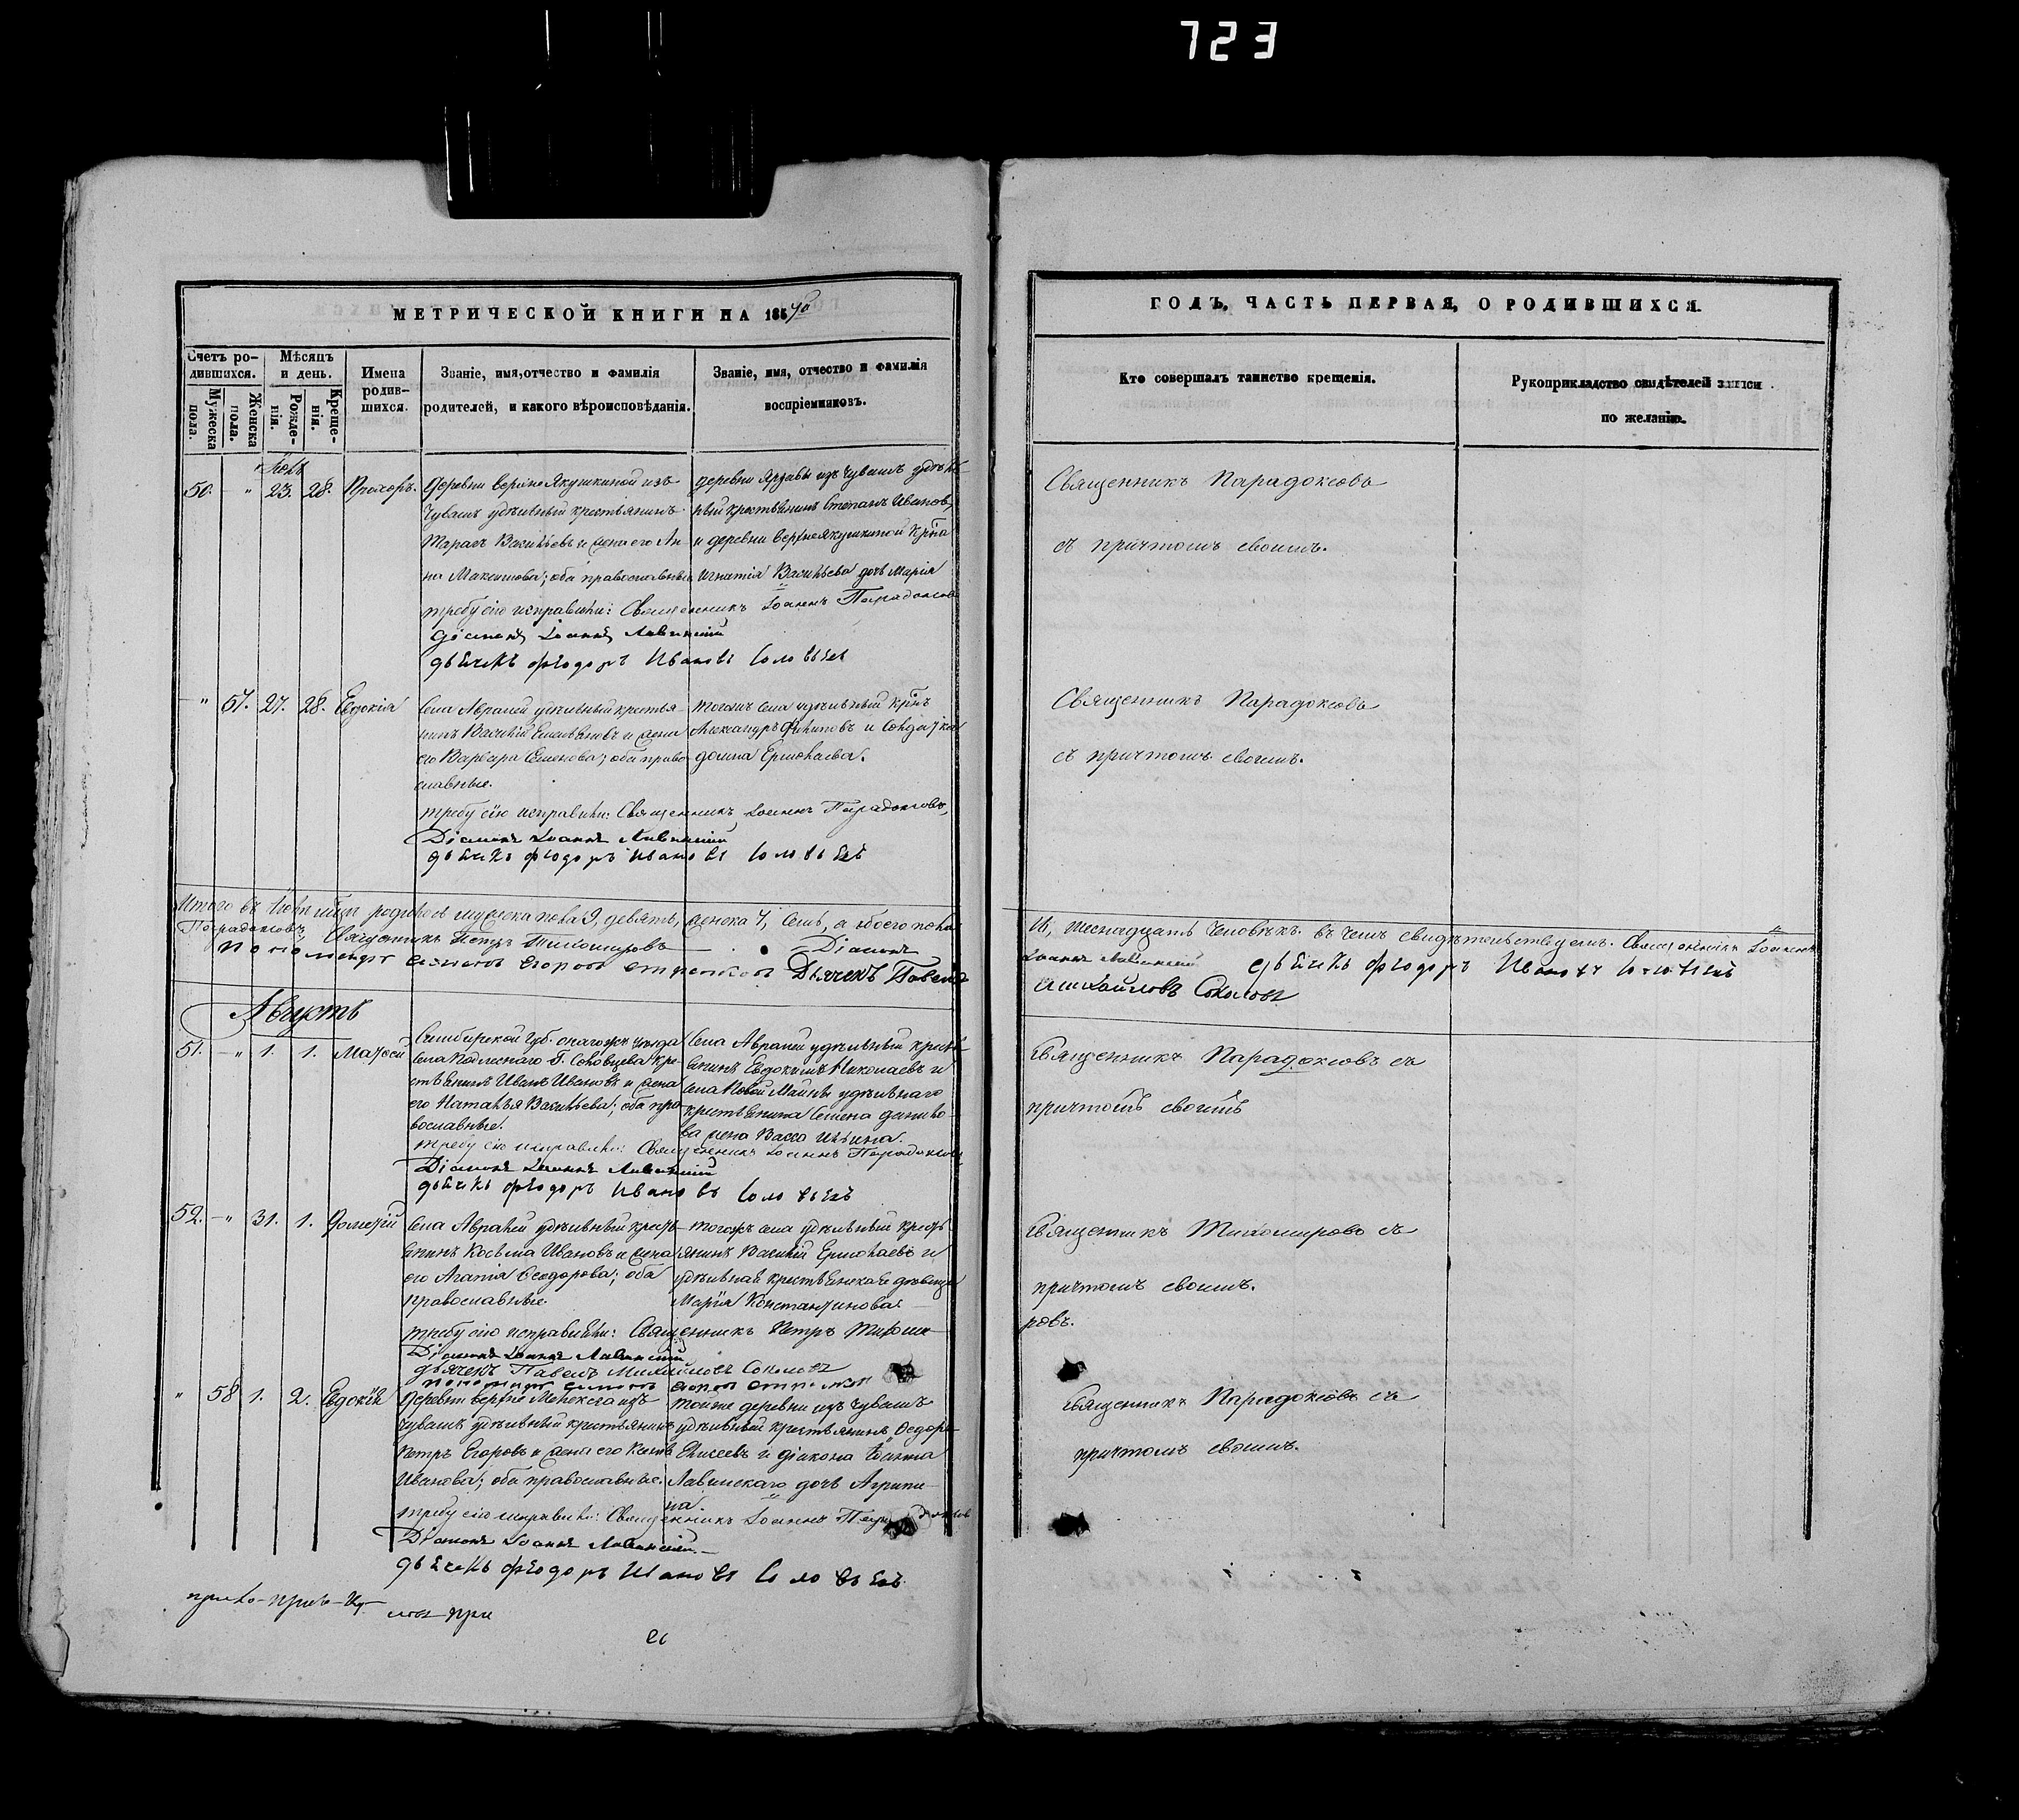 723
МЕТРИЧЕСКОЙ КНИГИ НА 185
ГОДЪ, ЧАСТЬ ПЕРВАЯ, О РОДИВШИХСЯ.
Счетъ родившихся.
Мужеска пола.
Женска пола.
Мѣсяцъ и день.
Рожденія.
Крещенія.
Имена родившихся.
Званіе, имя, отчество и фамилія родителей, и какого вѣроисповѣданія.
Званіе, имя, отчество и фамилія воспріемниковъ.
Кто совершалъ таинство крещенія.
Рукоприкладство свидѣтелей записи по желанію.
50. - " 23. 28. Прохоръ.
деревни верхне Якушкиной изъ
чувашъ удѣльный крестьянинъ
Тарасъ Васильевъ и жена его Ан-
на Максимова; оба православные
деревни изъ чувашъ удѣль-
ный крестьянинъ Степанъ Ивановъ
и деревни верхнеякушкиной
Игнатія Васильева дочь Марія
требу сію исправляли: Священникъ Іоаннъ Парадоксовъ
Діаконъ Іоаннъ Лавинскій
дьячекъ Феодоръ Ивановъ Соловьевъ
Священникъ Парадоксовъ
съ причтомъ своимъ.
" 57. 27. 28. Евдокія
Села Авралей удѣльный крестья-
нинъ Василій Емельяновъ и жена
его Варвара Семенова; оба право-
славные.
тогожъ села удѣльный
Александръ Филиповъ и солдатка
домна Ермолаева.
требу сію исправляли: Священникъ Іоаннъ Парадоксовъ,
Діаконъ Іоаннъ Лавинскій
дьячекъ феодоръ Ивановъ Соловьевъ
Священникъ Парадоксовъ
съ причтомъ своимъ.
Итого въ Іюлѣ родилось мужеска пола 9, девять, женска 7, семь, а обоего пола
16, шестнадцать человѣкъ. въ чемъ свидѣтельствуемъ. Священникъ Іоаннъ
Парадоксовъ, Священникъ Петръ Тихомировъ Діаконъ
Іоаннъ Лавинскій дьячекъ феодоръ Ивановъ Соловьевъ
пономарь Егоровъ Дьячекъ Павелъ
Михайловъ Соколовъ
Августъ
51. - " 1. 1. Матвей
Симбирской губ. онагожъ уѣзда
села
крестьянинъ Иванъ Ивановъ и жена
его Наталья Васильева; оба пра-
вославные.
Села Авралей удѣльный кресть-
янинъ Евдокимъ Николаевъ и
села Новой Майны удѣльнаго
крестьянина Семена данило-
ва жена Васса Ильина.
требу сію исправляли: Священникъ Іоаннъ Парадоксовъ,
Діаконъ Іоаннъ Лавинскій
дьячекъ феодоръ Ивановъ Соловьевъ
Священникъ Парадоксовъ съ
причтомъ своимъ
52. - " 31. 1. Дометій
Села Авралей удѣльный кресть-
янинъ Косьма Ивановъ и жена
его Агапія Феодорова; оба
православные.
тогожъ села удѣльный кресть-
янинъ Василій Ермолаевъ и
удѣльная крестьянская дѣвица
Марія Константинова.
требу сію исправляли: Священникъ Петръ Тихоми-
ровъ.
Діаконъ Іоаннъ Лавинскій
дьячекъ Павелъ Михайловъ Соколовъ
Священникъ Тихомировъ съ
причтомъ своимъ.
" 58 1. 2. Евдокія
деревни верхне изъ
чувашъ удѣльный крестьянинъ
Петръ Егоровъ и жена его
Иванова; оба православные.
тойже деревни изъ чувашъ
удѣльный крестьянинъ Федоръ
Елисеевъ и діакона Іоанна
Лавинскаго дочь Агрипи-
на.
требу сію исправляли: Священникъ Іоаннъ Парадоксовъ
Діаконъ Іоаннъ Лавинскій.
дьячекъ феодоръ Ивановъ Соловьевъ
Священникъ Парадоксовъ съ
причтомъ своимъ.